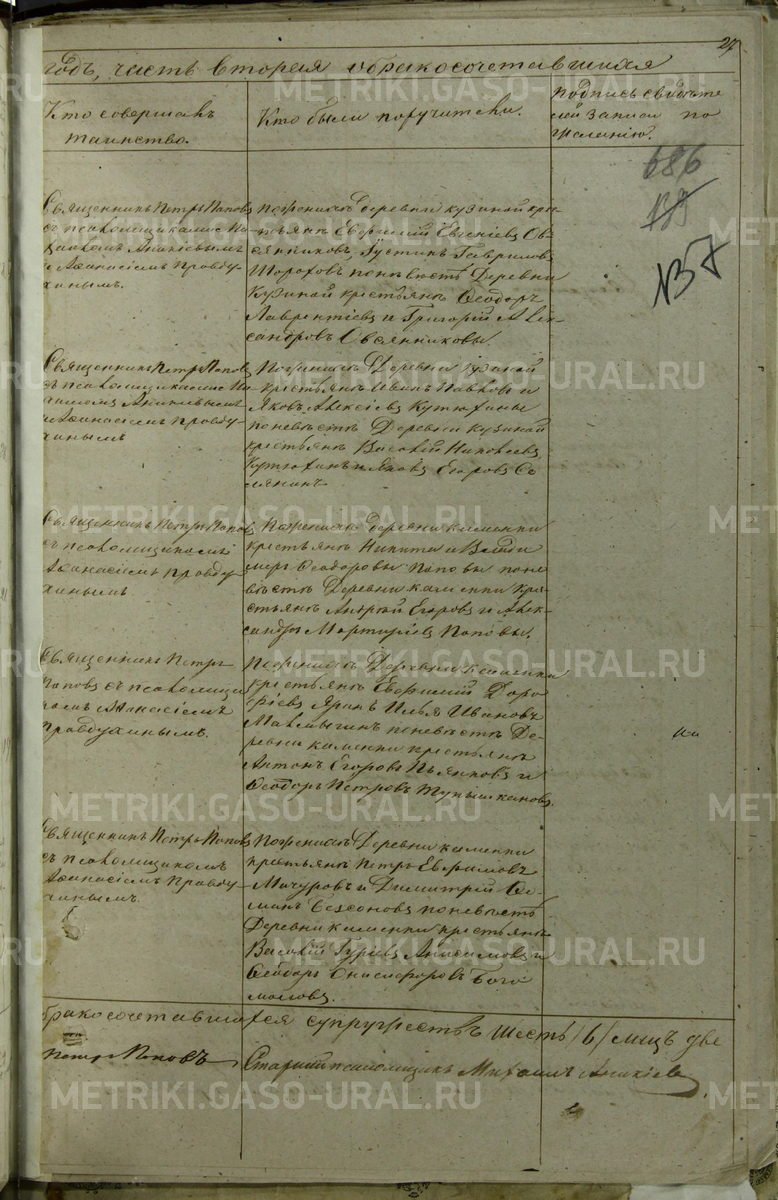 27
годъ, часть вторая о бракосочетавшихся
Кто совершалъ
таинство.
Кто были поручители.
Подпись свидѣте
лей записи по
желанію.
686
139
137
Священникъ Петръ Поповъ
съ псаломщиками Ми
хаиломъ Аникіевымъ
и Аѳанасіемъ Правду
хинымъ.
По женихѣ деревни Кузиной кре
стьянѣ Евфимій Евгеніевъ Ов
сянниковъ Іустинъ Гавриловъ
Шороховъ по невѣстѣ Деревни
Кузиной крестьяне Ѳеодоръ
Лаврентіевъ и Григорій Алек
сандровъ Овсянниковы.
Священникъ Петръ Поповъ
съ псаломщиками Ми
хаиломъ Аникіевымъ
и Аѳанасіемъ Правду
хинымъ
По женихѣ Деревни Кузиной
крестьяне Иванъ Павловъ и
Яковъ Алексіевъ Кутюхины
по невѣстѣ Деревни Кузиной
крестьяне Василій Николаевъ
Кутюхинъ и Яковъ Егоровъ Се
мянинъ
Священникъ Петръ Попов
съ псаломщикомъ
Аѳанасіемъ Правду
хинымъ
По женихѣ деревни Каменки
крестьяне Никита и Влади
міръ Ѳеодоровы Поповы по не
вѣстѣ Деревни Каменки Кре
стьяне Андрей Егоровъ и Алек
сандръ Мартиріевъ Поповы.
Священникъ Петръ
Поповъ съ псаломщи
комъ Аѳанасіемъ
Правдухинымъ.
По женихѣ Деревни Каменки
крестьяне Евфимій Доро
фіевъ Яринъ Илья Ивановъ
Мамыгинъ по невѣстѣ Де
ревни Каменки крестьяне
Антонъ Егоровъ Пьянковъ и
Ѳеодоръ Петровъ
Священникъ Петръ Поповъ
съ псаломщикомъ
Аѳанасіемъ Правду
хинымъ.
По женихѣ Деревни Каменки
крестьяне Петръ Евфимовъ
Мачуровъ и Димитрій Се
менъ по невѣстѣ
Деревни Каменки крестьяне
Василій Гуріевъ Анисимовъ и
Ѳеодоръ Онисифоровъ Бого
моловъ.
бракосочетавшихся супружествъ шесть /6/ лицъ две
Петръ Поповъ
Старшій псаломщикъ Михаилъ Аникіевъ
METRIKI.GASO-URAL.RU